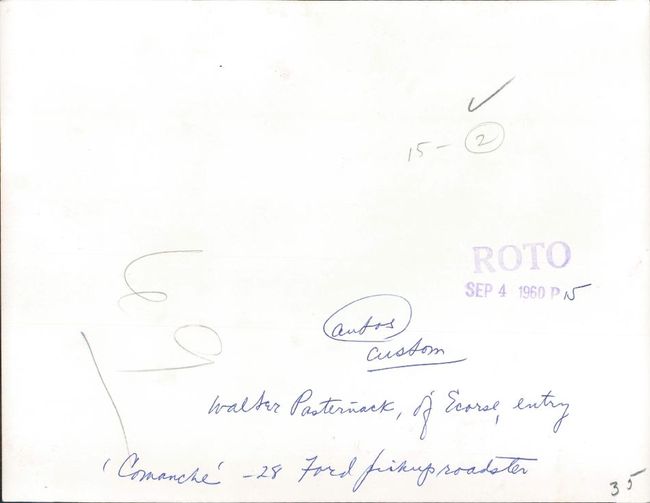 15- 2
ROTO
SEP 4 1960 P 15
autos
custom
Walter Pasternack, of Ecorse, entry
'Comanche' -28 Ford pickup roadster
35